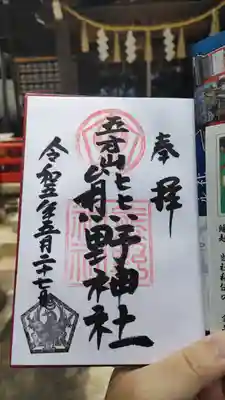 奉拝
五方山熊野神社
令和五年五月二十七日